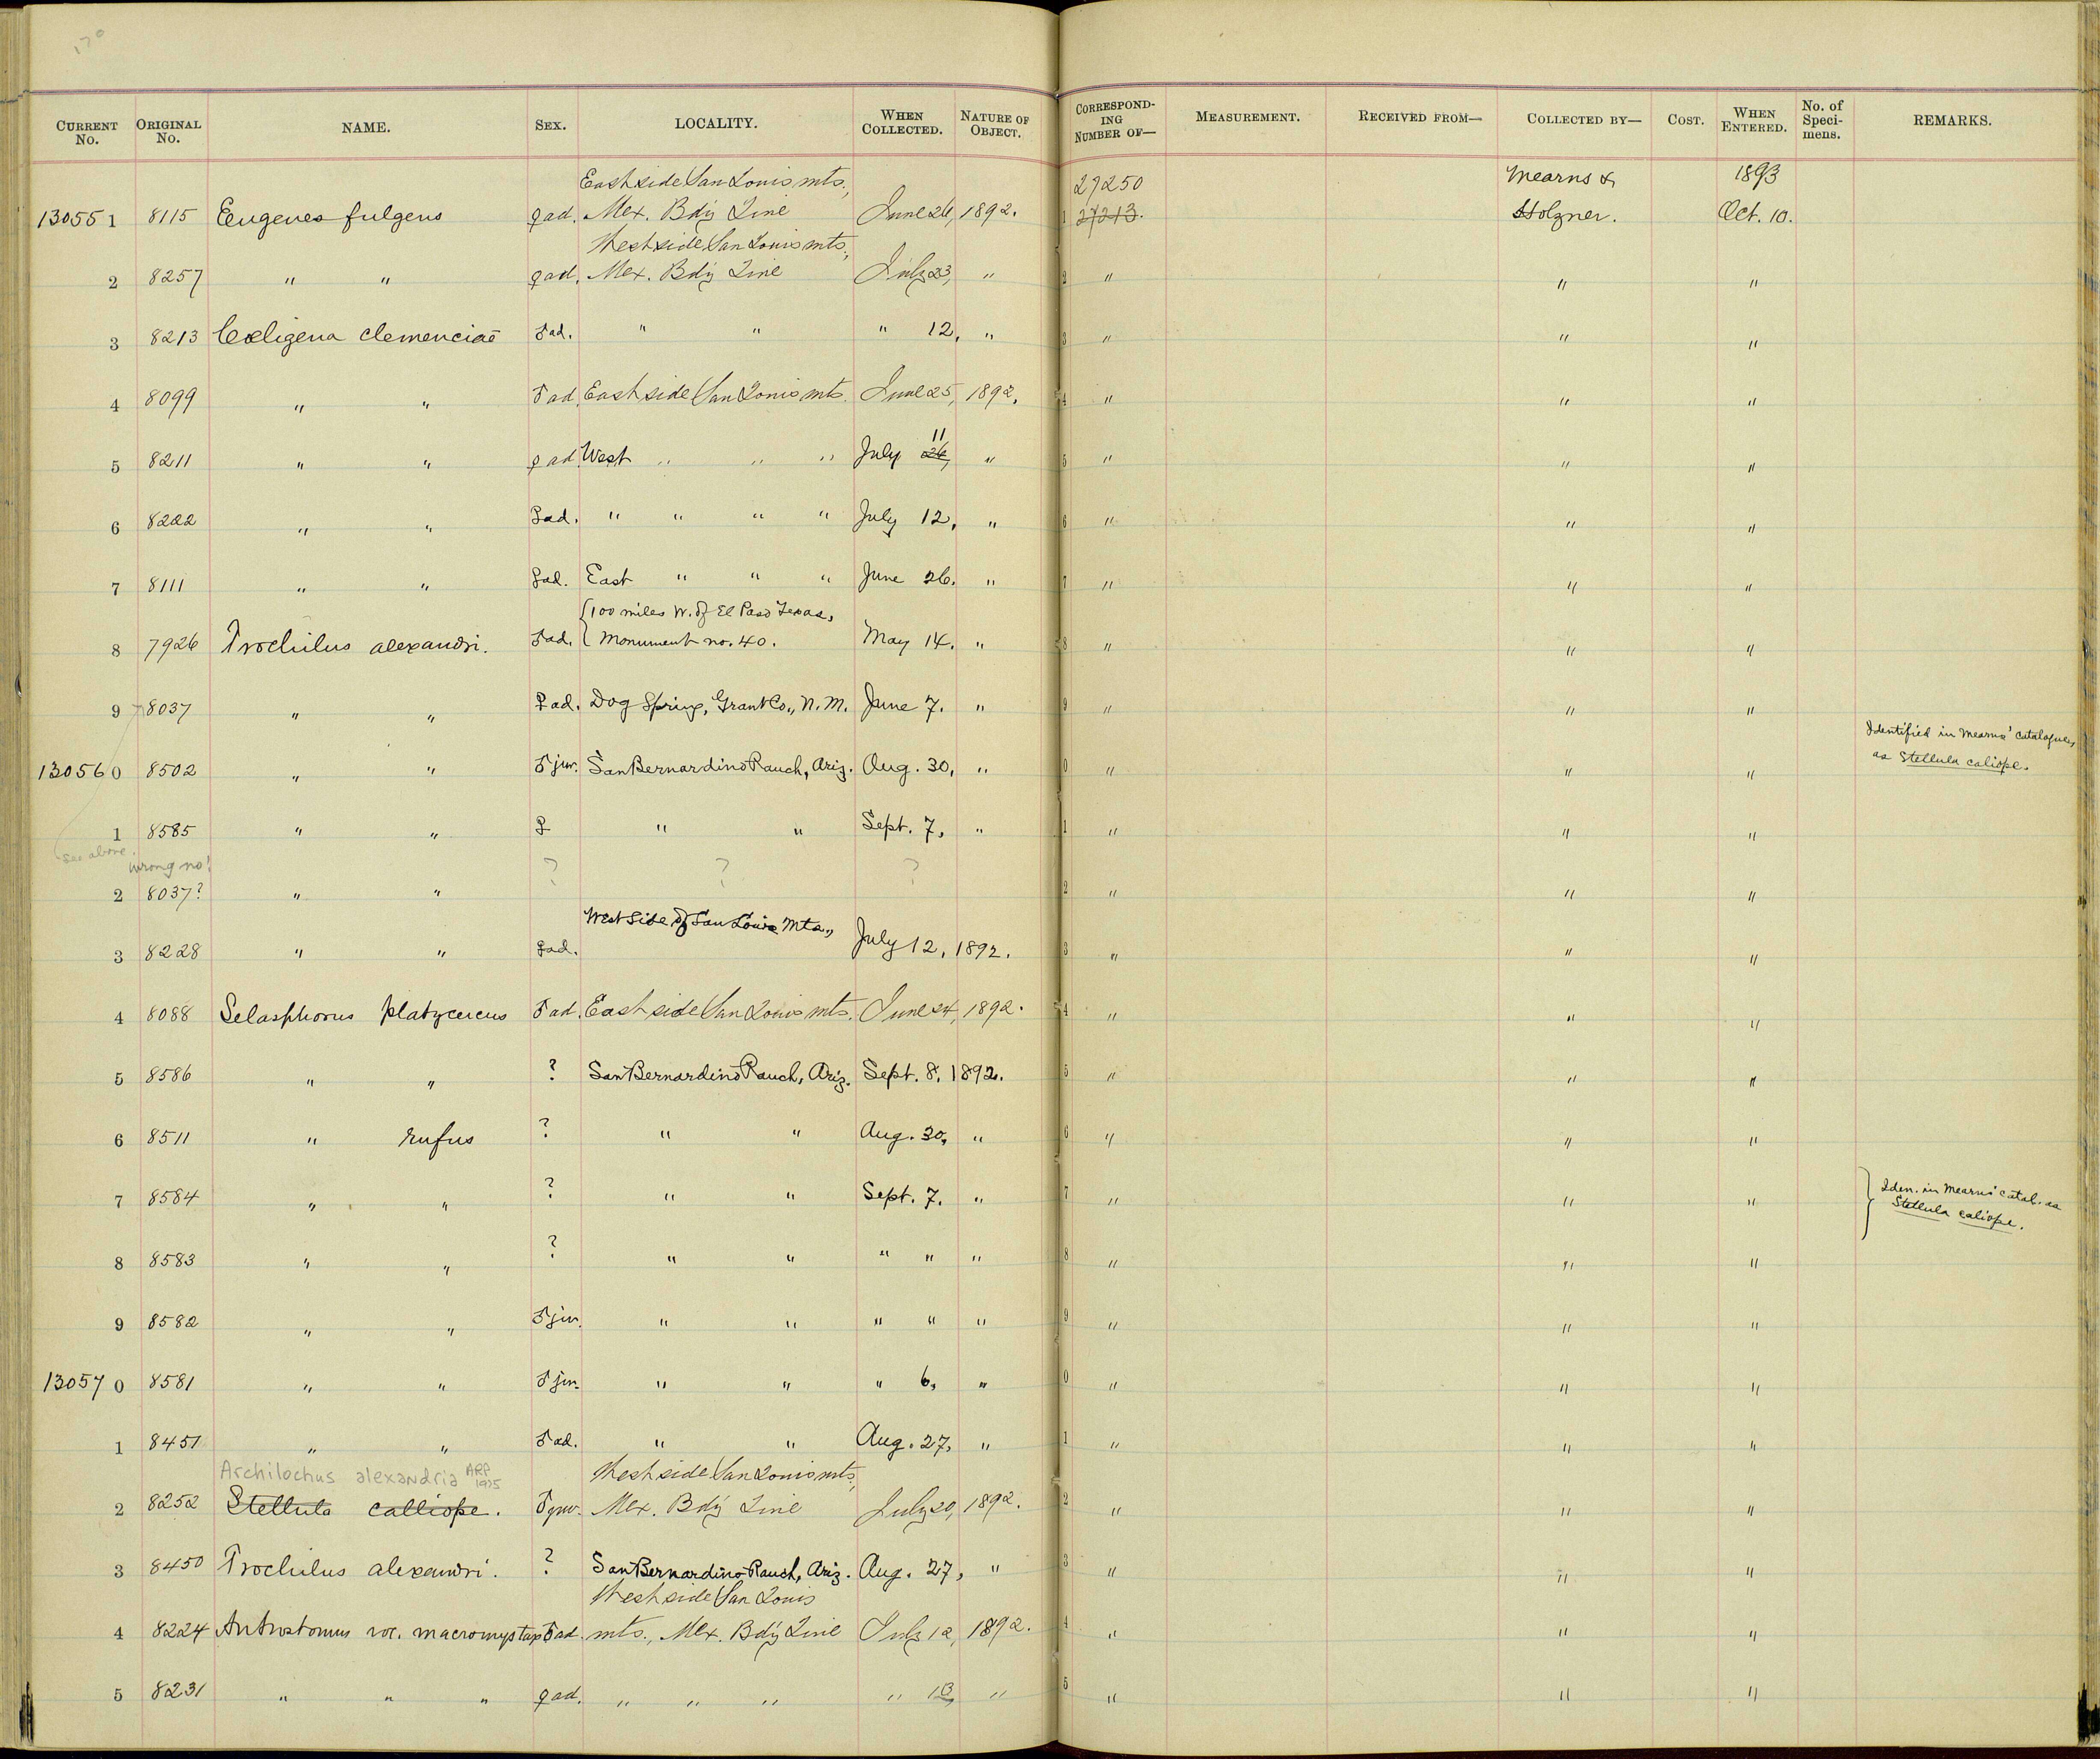 170
CURRENT No. ORIGINAL No. NAME. SEX. LOCALITY. WHEN COLLECTED. NATURE OF OBJECT. CORRESPONDING NUMBER OF— MEASUREMENT. RECEIVED FROM— COLLECTED BY— COST. WHEN ENTERED. No. of Specimens. REMARKS.
East side San Louis mts., 27250 Mearns & 1893
13055 1 8115 Eugenes fulgens ♀ ad. Mex. Bd'y Line June 26, 1892. 1 27213. Holzner. Oct. 10.
West side San Louis mts.,
2 8257 " " ♀ ad. Mex. Bd'y Line July 23, " 2 " " "
3 8213 Cœligena clemenciae ♂ ad. " " " 12, " 3 " " "
4 8099 " " ♂ ad. East side San Louis mts. June 25, 1892. 4 " " "
11
5 8211 " " ♀ ad. West " " " July 26, " 5 " " "
6 8222 " " ♀ ad. " " " " July 12, " 6 " " "
7 8111 " " ♀ ad. East " " " June 26. " 7 " " "
{100 miles W. of El Paso Texas,
8 7926 Trochilus alexandri. ♂ ad. Monument no. 40. May 14. " 8 " " "
9 8037 " " ♀ ad. Dog Spring, Grant Co., N. M. June 7. " 9 " " "
Identified in Mearns' catalogue,
13056 0 8502 " " ♂ juv. San Bernardino Ranch, Ariz. Aug. 30, " 0 " " " as Stellula caliope.
1 8585 " " ♀ " " Sept. 7, " 1 " " "
see above. wrong no! ? ? ?
2 8037? " " 2 " " "
West Side of San Louis Mts.,
3 8228 " " ♀ ad. July 12, 1892. 3 " " "
4 8088 Selasphorus platycercus ♂ ad. East side San Louis mts. June 24, 1892. 4 " " "
5 8586 " " ? San Bernardino Ranch, Ariz. Sept. 8, 1892. 5 " " "
6 8511 " rufus ? " " Aug. 30, " 6 " " "
7 8584 " " ? " " Sept. 7. " 7 " " " } Iden. in Mearns' catal. as
Stellula caliope.
8 8583 " " ? " " " " " 8 " " "
9 8582 " " ♂ juv. " " " " " 9 " " "
13057 0 8581 " " ♂ juv. " " " 6, " 0 " " "
1 8451 " " ♂ ad. " " Aug. 27, " 1 " " "
Archilochus alexandria ARP 1975 West side San Louis mts.,
2 8252 Stellula calliope. ♂ juv. Mex. Bd'y Line July 20, 1892. 2 " " "
3 8450 Trochilus alexandri. ? San Bernardino Ranch, Ariz. Aug. 27, " 3 " " "
West side San Louis
4 8224 Antrostomus voc. macromystax ♂ ad. mts., Mex. Bd'y Line July 12, 1892. 4 " " "
5 8231 " " " ♀ ad. " " " " 13, " 5 " " "